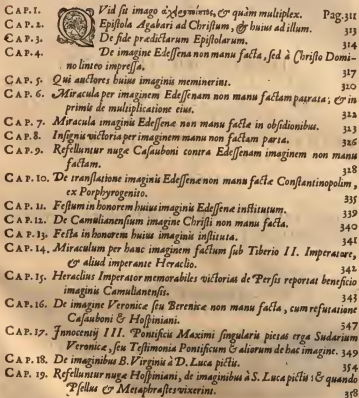 CAP. 1. QVid sit imago ἀχειροποίητος, & quàm multiplex. Pag. 311
CAP. 2. Epistola Agabari ad Christum, & huius ad illum. 313
CAP. 3. De fide prædictarum Epistolarum. 314
CAP. 4. De imagine Edessena non manu facta, sed à Christo Domi-
no linteo impressa. 317
CAP. 5. Qui auctores huius imaginis meminerint. 320
CAP. 6. Miracula per imaginem Edessenam non manu factam patrata; & in
primis de multiplicatione eius. 322
CAP. 7. Miracula imaginis Edessenæ non manu factæ in obsidionibus. 323
CAP. 8. Insignis victoria per imaginem manu non factam parta. 326
CAP. 9. Refelluntur nugæ Casauboni contra Edessenam imaginem non manu
factam. 328
CAP. 10. De translatione imaginis Edessenæ non manu factæ Constantinopolim,
ex Porphyrogenito.
CAP. 11. Festum in honorem huius imaginis Edessenæ institutum. 335
CAP. 12. De Camulianensium imagine Christi non manu facta. 340
CAP. 13. Festa in honorem huius imaginis instituta. 341
CAP. 14. Miraculum per hanc imaginem factum sub Tiberio II. Imperatore,
& aliud imperante Heraclio. 342
CAP. 15. Heraclius Imperator memorabiles victorias de Persis reportat beneficio
imaginis Camulianensis. 343
CAP. 16. De imagine Veronicæ seu Berenicæ non manu facta, cum refutatione
Casauboni & Hospiniani. 347
CAP. 17. Innocentij III. Pontificis Maximi singularis pietas erga Sudarium
Veronicæ, seu Testimonia Pontificum & aliorum de hac imagine. 349
CAP. 18. De imaginibus B. Virginis à D. Luca pictis. 354
CAP. 19. Refelluntur nugæ Hospiniani, de imaginibus à S. Luca pictis: & quando
Psellus & Metaphrastes vixerint. 358